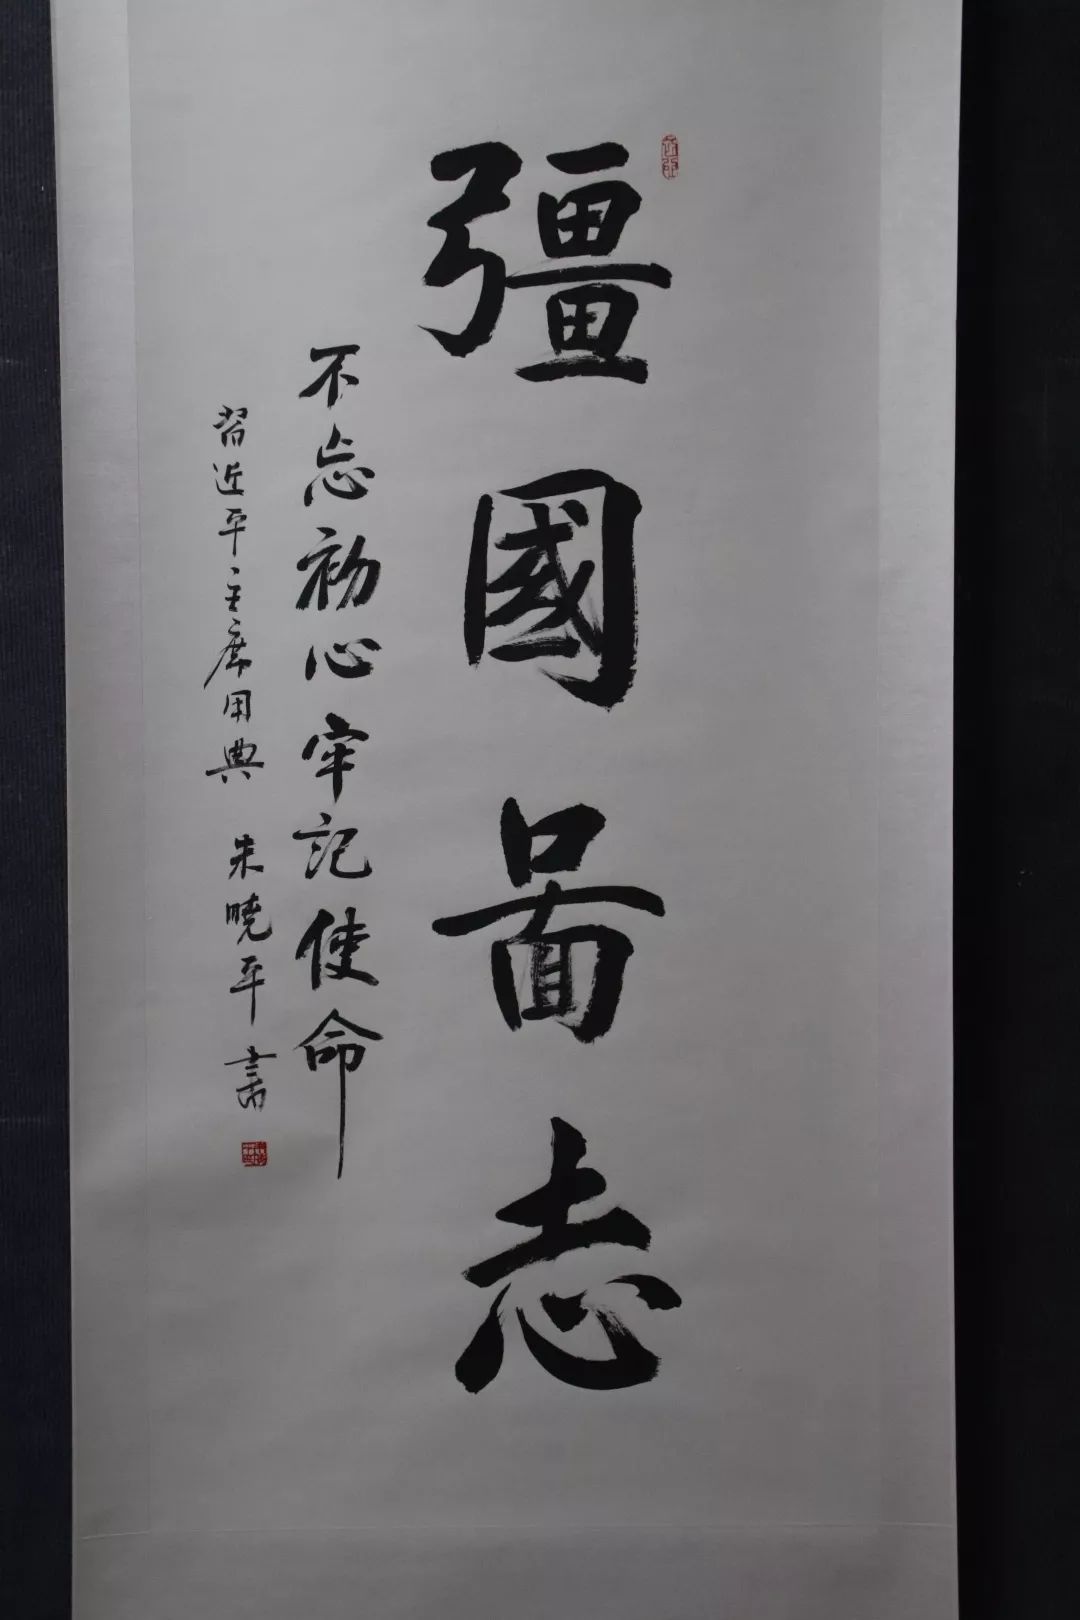 彊國啚志
不忘初心牢記使命
習近平主席用典 朱曉平書